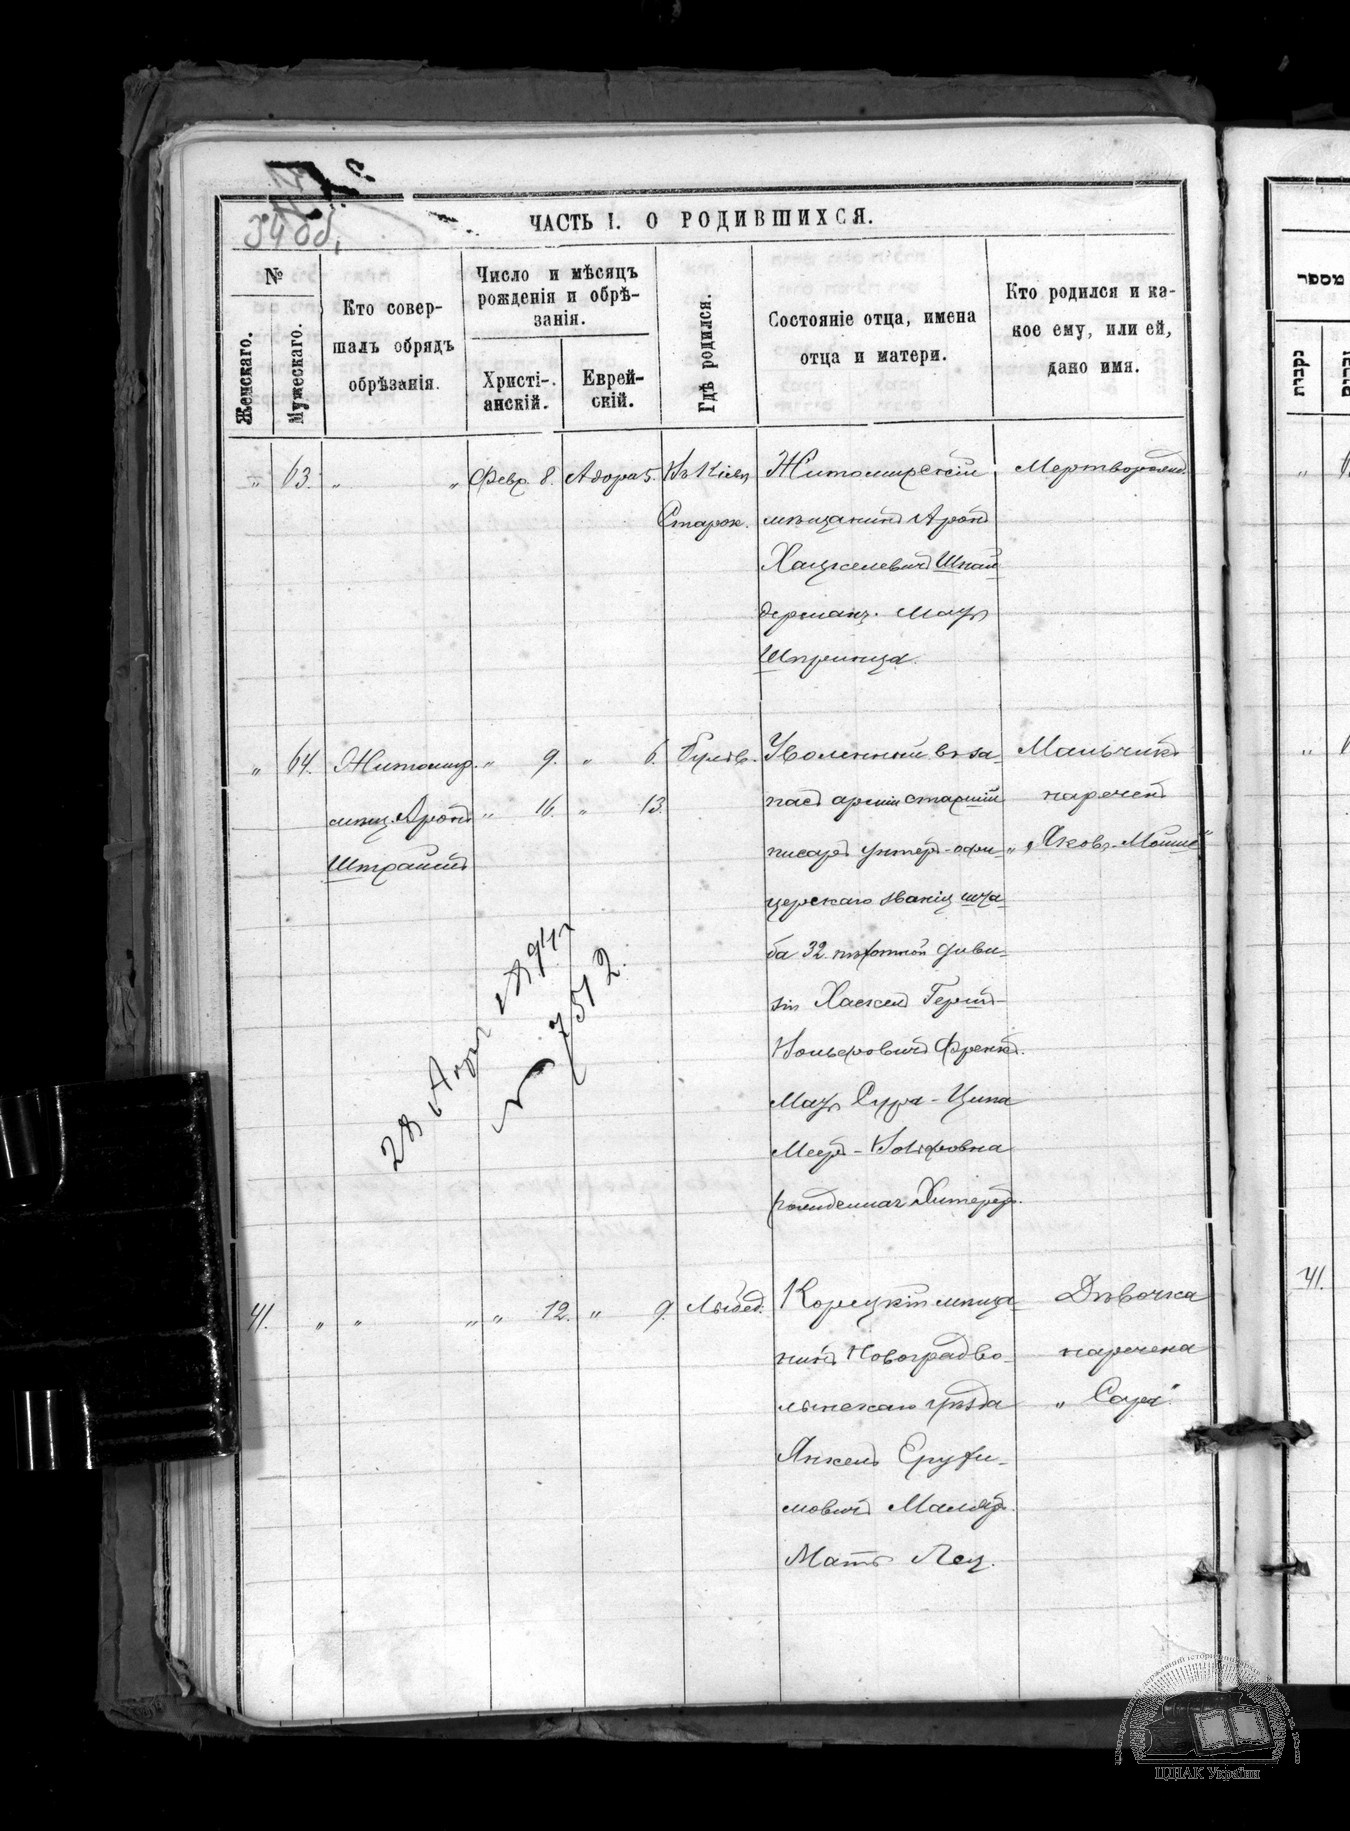 34 об.
ЧАСТЬ I. О РОДИВШИХСЯ.
№
Женскаго.
Мужескаго.
Кто совер-
шалъ обрядъ
обрѣзанія.
Число и мѣсяцъ
рожденія и обрѣ-
занія.
Христі-
анскій.
Еврей-
скій.
Гдѣ родился.
Состояніе отца, имена
отца и матери.
Кто родился и ка-
кое ему, или ей,
дано имя.
„ 63. „ „ Февр. 8. Адора 5. Въ Кіевѣ
Старок.
Житомирскій
мѣщанинъ Аронъ
Хацкелевичъ Шнай
дерманъ. Мать
Шпринца.
Мертворожд.
„ 64. Житомир.
мѣщ. Аронъ
Штраймъ
„ 9. „ 6.
„ 16. „ 13.
Бульв.
Уволенный въ за-
пасъ арміи старшій
писарь унтеръ-офи-
церскаго званія шта-
ба 32 пѣхотной диви-
зіи Хаскель Герш-
Вольфовичъ Френк.
Мать Сура-Ципа
Меер-Вольфовна
рожденная
Мальчикъ
нареченъ
„Яковъ-Мошко“
28
№ 7512.
41. „ „ „ „ 12. „ 9. Лыбед.
Корецкій мѣща-
нинъ Новоградво-
лынскаго уѣзда
Янкель Ерухи-
мовичъ Маляр.
Мать Лея.
Дѣвочка
наречена
„Сара“.
מספר
נקבות
41.
ЦДІАК України